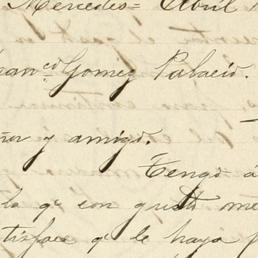 Mercedes= Abril
Franco Gomez Palacio.
ñor y amigo.
Tengo á
la qe con gusto me
tisface qe le haya